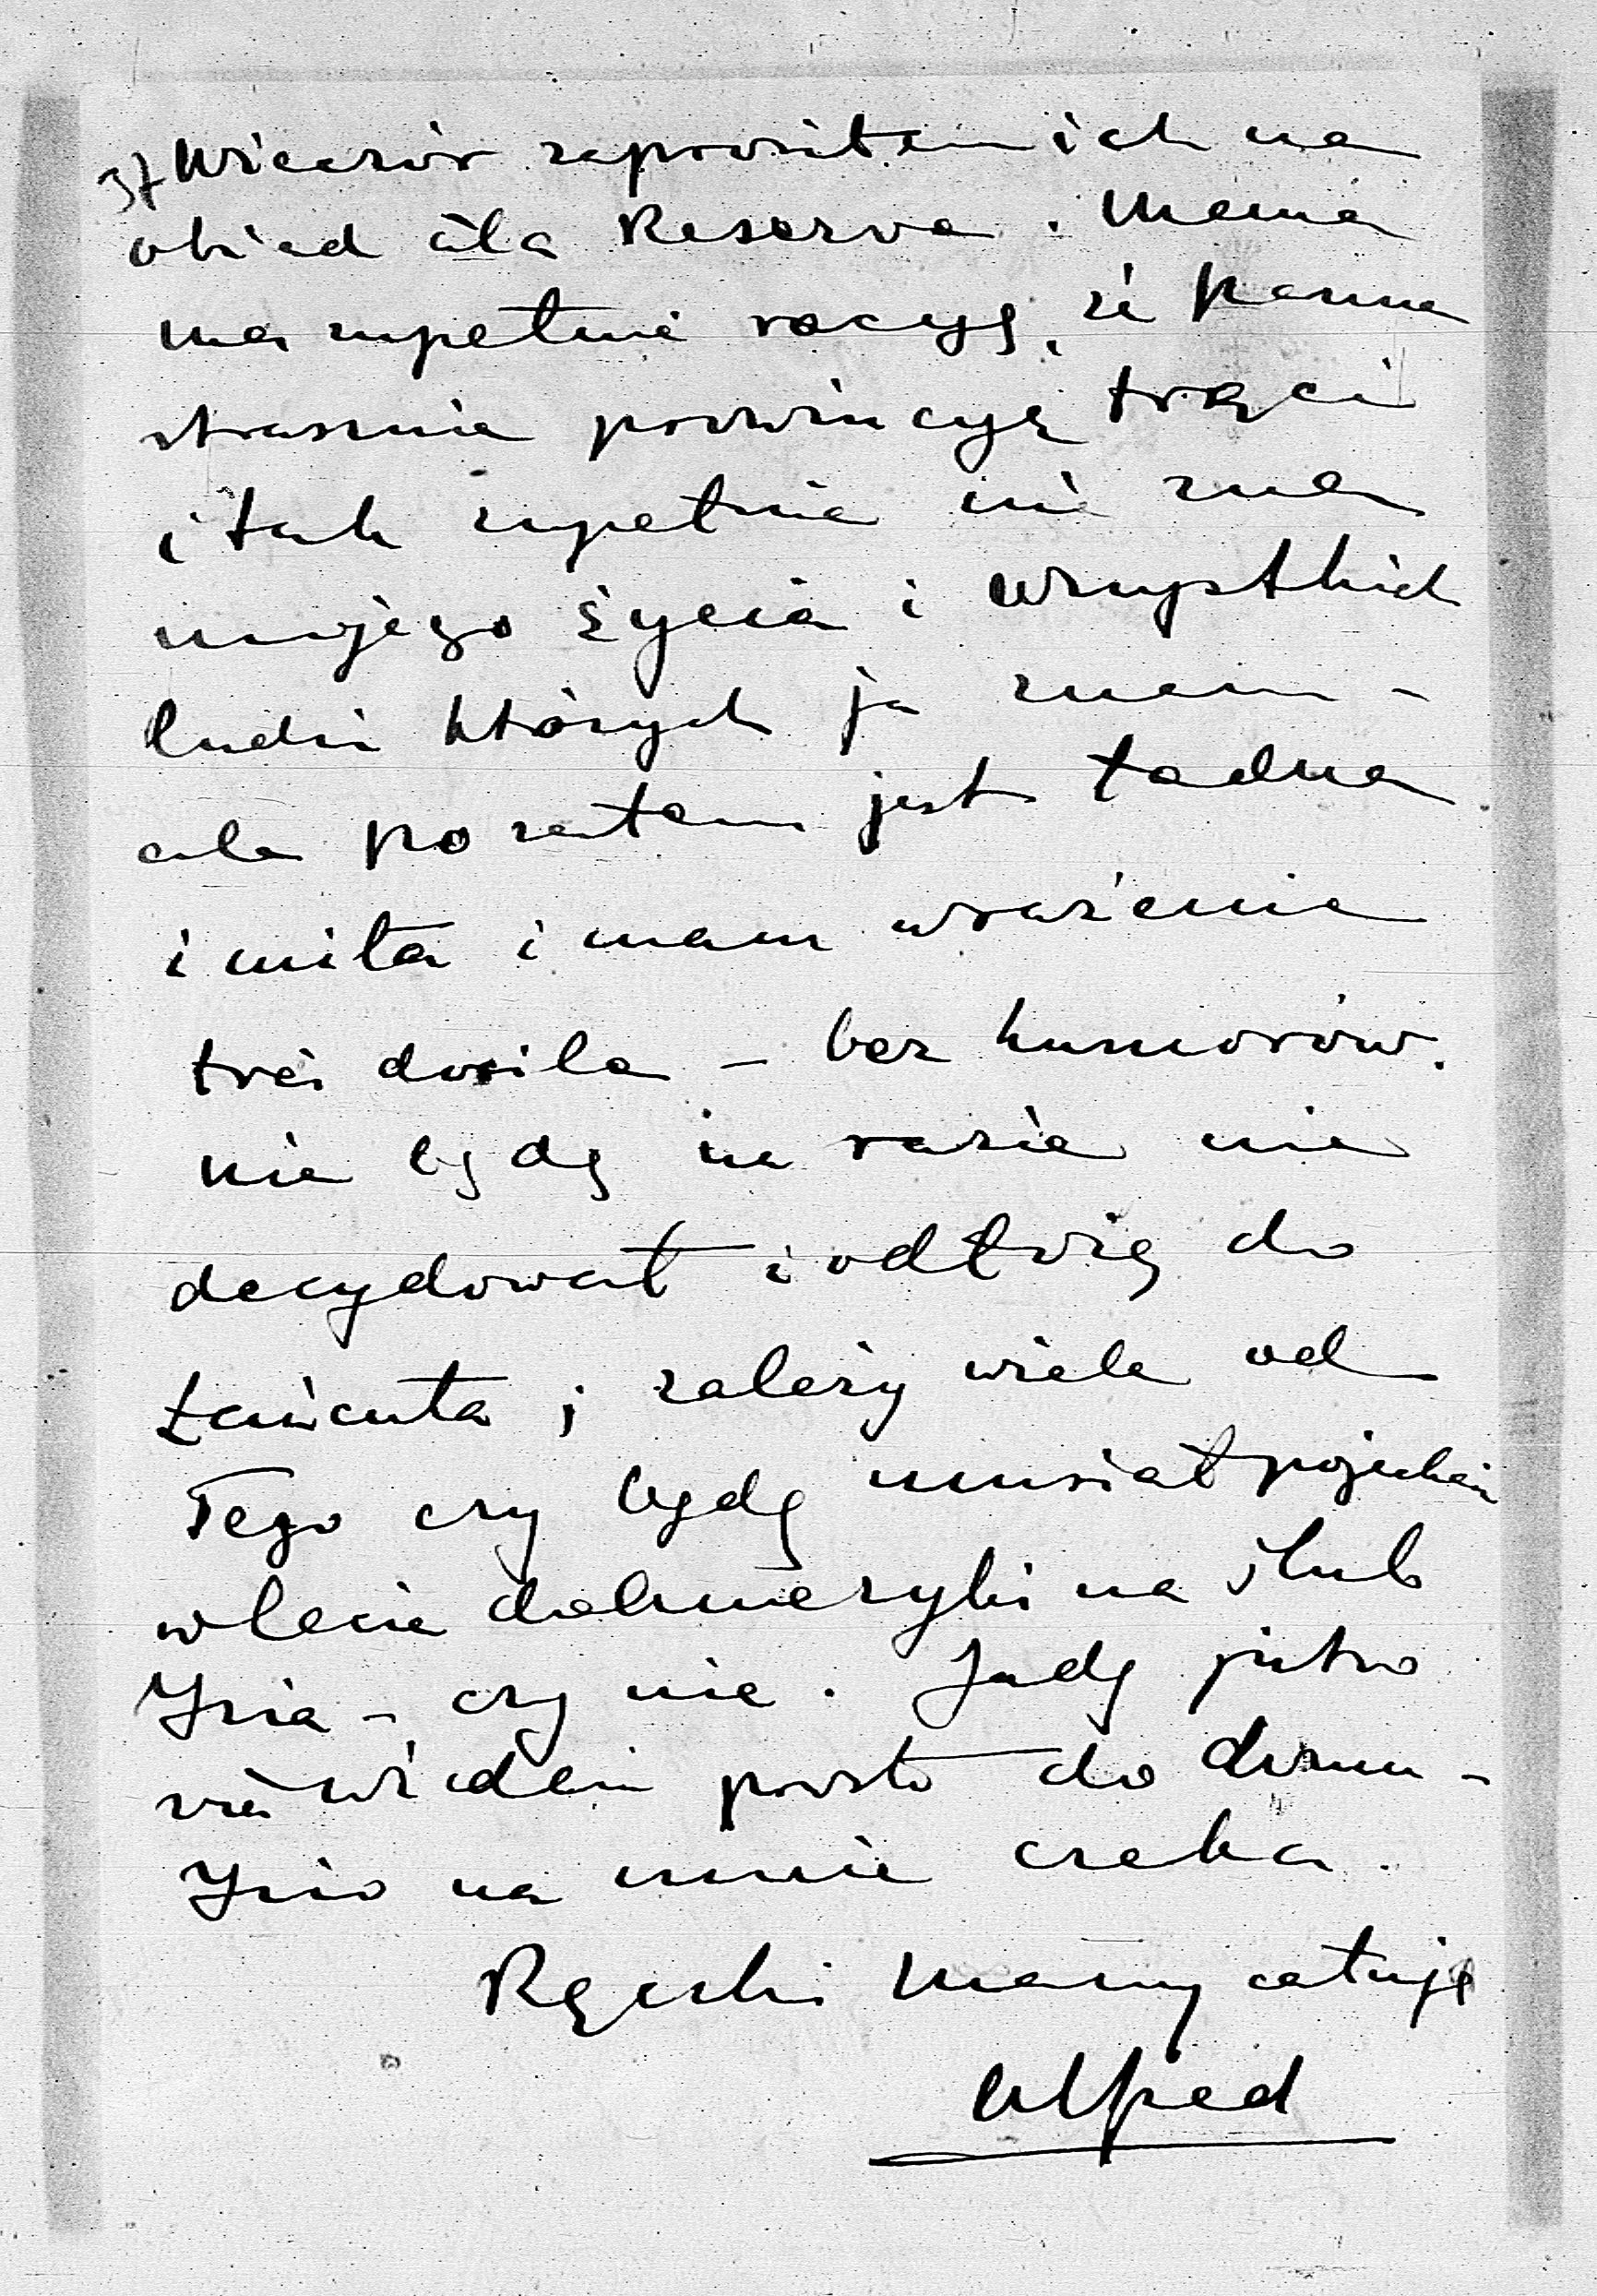 3/ Wieczór zaprosiłem ich na
obiad à la Reserve. Mama
ma zupełnie racyę, że Panna
strasznie prowincyą trąci
i tak zupełnie nie zna
mojego życia i wszystkich
ludzi których ja znam –
ale po zatem jest ładna
i miła i mam wrażenie
très docile – bez humorów.
nie będę na razie nie
decydował i odłożę do
Łańcuta; zależy wiele od
Tego czy będę musiał pojechać
w lecie do Ameryki na ślub
Jzia – czy nie. Jadę jutro
via Wiedeń prosto do domu –
Jzio na mnie czeka.
Rączki Mamy całuję
Alfred